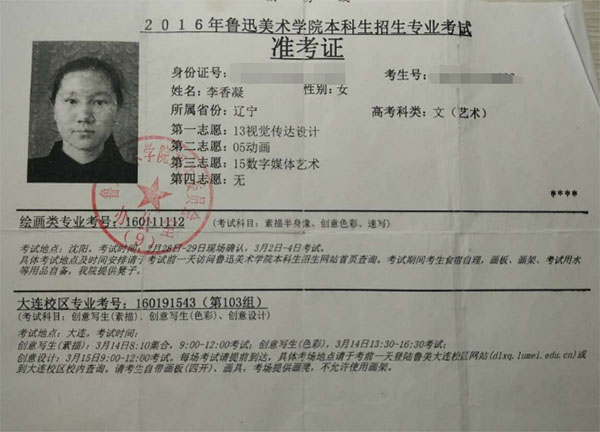 2016年鲁迅美术学院本科生招生专业考试
准考证
身份证号: 考生号:
姓名: 李香凝 性别: 女
所属省份: 辽宁 高考科类: 文(艺术)
第一志愿: 13视觉传达设计
第二志愿: 05动画
第三志愿: 15数字媒体艺术
第四志愿: 无
****
绘画类专业考号: 160111112 (考试科目: 素描半身像、创意色彩、速写)
考试地点: 沈阳。考试时间: 2月28日-29日现场确认, 3月2日-4日考试。
具体考试地点及时间安排请于考试前一天访问鲁迅美术学院本科生招生网站首页查询。考试期间考生食宿自理, 画板、画架、考试用水
等用品自备, 我院提供凳子。
大连校区专业考号: 160191543 (第103组)
(考试科目: 创意写生(素描)、创意写生(色彩)、创意设计)
考试地点: 大连。考试时间:
创意写生(素描): 3月14日8:10集合, 9:00-12:00考试; 创意写生(色彩), 3月14日13:30-16:30考试;
创意设计: 3月15日9:00-12:00考试。每场考试请提前到达, 具体考场地点请于考前一天登陆鲁美大连校区网站(dlxq.lumei.edu.cn)或
到大连校区校内查询。请考生自带画板(四开)、画具, 考场提供画凳, 不允许使用画架。